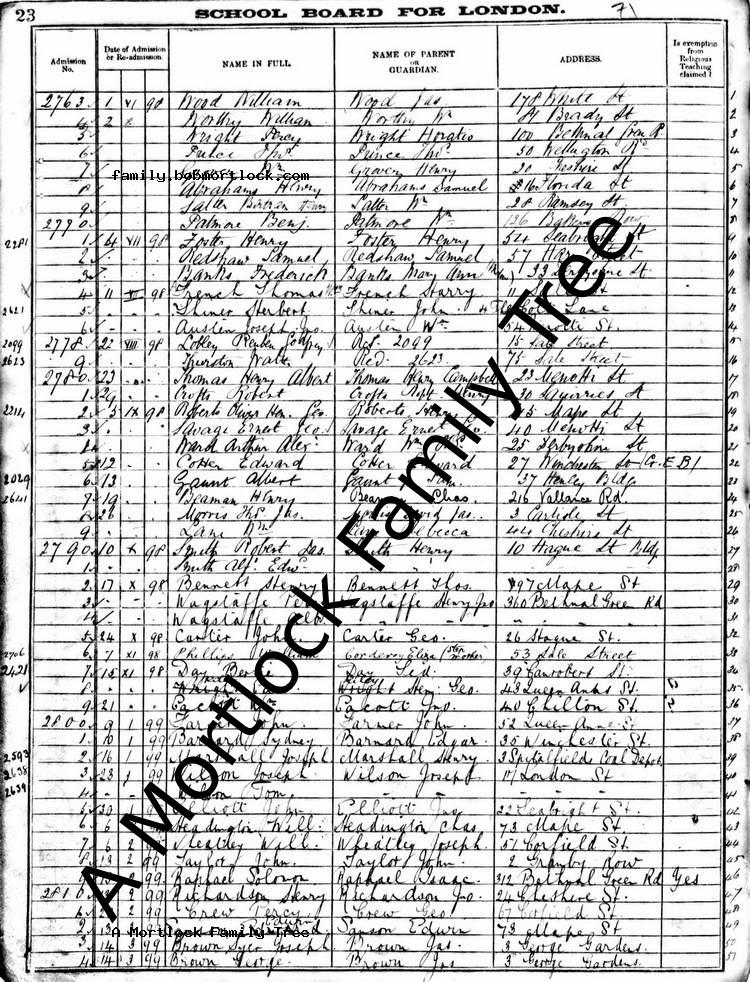 23 SCHOOL BOARD FOR LONDON. 71
Admission No. Date of Admission or Re-admission. NAME IN FULL. NAME OF PARENT or GUARDIAN. ADDRESS. Is exemption from Religious Teaching claimed?
2763 1 VI 98 Wood William Wood Jas 178 White St 1
4 2 Worthy William Worthy Wm 81 Brady St 2
5 Wright Percy Wright Horatio 100 Bethnal Green R. 3
6 Prince Thos. Prince Thos. 50 Wellington Rd 4
7 Wm Grovery Henry 20 Cheshire St 5
family.bobmortlock.com
8 Abrahams Henry Abrahams Samuel 16 Florida St 6
9 Salter Bertram Henry Salter Wm 28 Ramsey St 7
2770 Patmore Benj. Patmore Wm 126 8
2281 1 4 VII 98 Foster Henry Foster Henry 54 Seabright St 9
2 Redshaw Samuel Redshaw Samuel 57 10
3 Banks Frederick Banks Mary Ann 33 Derbyshire St 11
4 11 VII 98 French Thomas French Harry 11 St 12
2621 5 - - - Shiner Herbert Shiner John 4 Lane
6 - - - Austen Joseph Jno. Austen Wm 54 Menotti St.
2099 2778 22 VIII 98 Lobley Reuben Godfrey Ref. 2099 15 Sale Street 15
2623 9 - - - Thurston Walter Red. 2623 75 Sale Street 16
2780 23 - - Thomas Henry Albert Thomas Henry Campbell 23 Menotti St
1 29 - - Crofts Robert Crofts Robt Henry 30 Squirries St
2214 2 5 IX 98 Roberts Oliver Hen. Geo. Roberts 45 Mape St 19
3 - - - Savage Ernest Geo. Savage Ernest Geo. 40 Menotti St 20
4 Ward Arthur Alex. Ward Wm 25 Derbyshire St 21
5 12 Cotter Edward Cotter Edward 27 Winchester St (Co. E.B) 22
2029 6 13 Gaunt Albert Gaunt 37 Henley Bldgs 23
2641 7 19 Beaman Henry Beaman Chas. 216 Vallance Rd. 24
8 26 Morris Thos. Jas. Morris David Jas. 3 Carlisle St 25
9 - - Lane Wm Lane Rebecca 44 Cheshire St 26
2790 10 X 98 Smith Robert Jas. Smith Henry 10 Hague St Bldg 27
1 - - - Smith Alf. Edw.
2 17 X 98 Bennett Henry Bennett Thos. 97 Mape St 29
3 - - - Wagstaffe Wagstaffe Henry Jno 360 Bethnal Green Rd 30
4 Wagstaffe - - - 31
5 24 X 98 Carter John Carter Geo. 26 Hague St. 32
2706 6 7 XI 98 Phillips William Corderoy Eliza (Step mother) 53 Sale Street 33
2421 7 15 XI 98 Day Bertie Day Sid. 39 Canrobert St. 34
8 - - Wright Wright Hen. Geo. 43 Queen Anns St. 35
9 21 - Eacott Eacott Jno. 40 Chilton St. 36
2800 9 1 99 Farmer John Farmer John 52 Queen Anne St 37
1 10 1 99 Barnard Sydney Barnard Edgar 35 Winchester St. 38
2593 2 16 1 99 Marshall Joseph Marshall Henry 3 Spitalfield Coal Depot 39
2638 3 23 1 99 Wilson Joseph Wilson Joseph 17 London St 40
2639 4 Wilson Tom - - -
5 30 1 Elliott John Elliott Jno 22 Seabright St. 42
6 6 Headington Will. Headington Chas 73 Mape St 43
7 6 2 Wheatley Will. Wheatley Joseph 51 Corfield St 44
8 13 2 99 Taylor John Taylor John 2 Granby Row 45
9 13 2 99 Raphael Solomon Raphael Isaac 312 Bethnal Green Rd Yes 46
2810 2 99 Richardson Henry Richardson Jno. 24 Cheshire St 47
1 2 99 Crew Percy Crew Geo. 67 Corfield St 48
2 13 Sanson Edwin Sanson Edwin 73 Mape St. 49
A Mortlock Family Tree
3 14 3 99 Brown Syer Joseph Brown Jas. 3 George Gardens. 50
4 14 3 99 Brown George. Brown Jas 3 George Gardens. 51
A Mortlock Family Tree